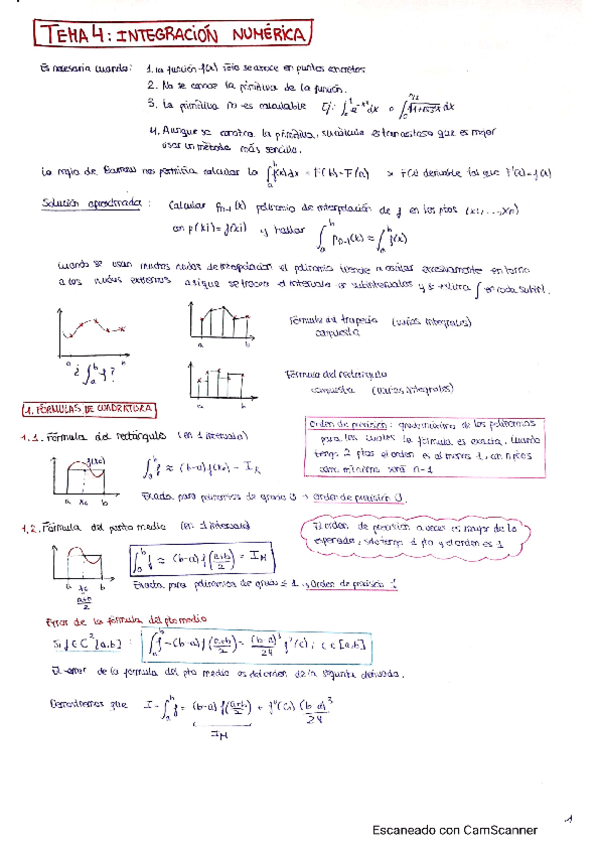 TEMA 4: INTEGRACIÓN NUMÉRICA
Es necesaria cuando: 1. La función f(x) sólo se conoce en puntos concretos
2. No se conoce la primitiva de la función.
3. La primitiva no es calculable Ej: ∫ e^-x² dx o ∫ dx
4. Aunque se conozca la primitiva, su cálculo es tan costoso que es mejor
usar un método más sencillo.
La regla de Barrow nos permitiría calcular la ∫_a^b f(x)dx = F(b) - F(a) F(x) derivable tal que F'(x) = f(x)
Solución aproximada: Calcular p_n-1(x) polinomio de interpolación de f en los ptos (x1,...,xn)
con p(xi) = f(xi) y hallar ∫_a^b p_n-1(x) ≈ ∫_a^b f(x)
Cuando se usan muchos nodos de interpolación el polinomio tiende a oscilar excesivamente en torno
a los nodos extremos así que se trocea el intervalo en subintervalos y se ∫ en cada subint.
a b
¿∫_a^b f?
a b
Fórmula del trapecio (varios integrales)
compuesta
a b
Fórmula del rectángulo
compuesta (varios integrales)
1. FÓRMULAS DE CUADRATURA
1.1. Fórmula del rectángulo (en 1 intervalo)
f(x0)
a x0 b
∫_a^b f ≈ (b-a) f(x0) = I_R
Exacta para polinomios de grado 0 → Orden de precisión 0.
Orden de precisión: grado máximo de los polinomios
para los cuales la fórmula es exacta. Cuando
tengo 2 ptos el orden es al menos 1, con n ptos
como mínimo será n-1
1.2. Fórmula del punto medio (en 1 intervalo)
a x0 b
a+b/2
∫_a^b f ≈ (b-a) f(a+b/2) = I_M
Exacta para polinomios de grado ≤ 1. Orden de precisión 1
El orden de precisión a veces es mayor de lo
esperado, sólo tengo 1 pto y el orden es 1
Error de la fórmula del pto medio
Si f ∈ C²[a,b] : ∫_a^b f - (b-a) f(a+b/2) = (b-a)³/24 f''(c), c ∈ [a,b]
El error de la fórmula del pto medio es del orden de la segunda derivada.
Demostremos que I = ∫_a^b f = (b-a) f(a+b/2) + f''(c) (b-a)³/24
I_M
1
Escaneado con CamScanner